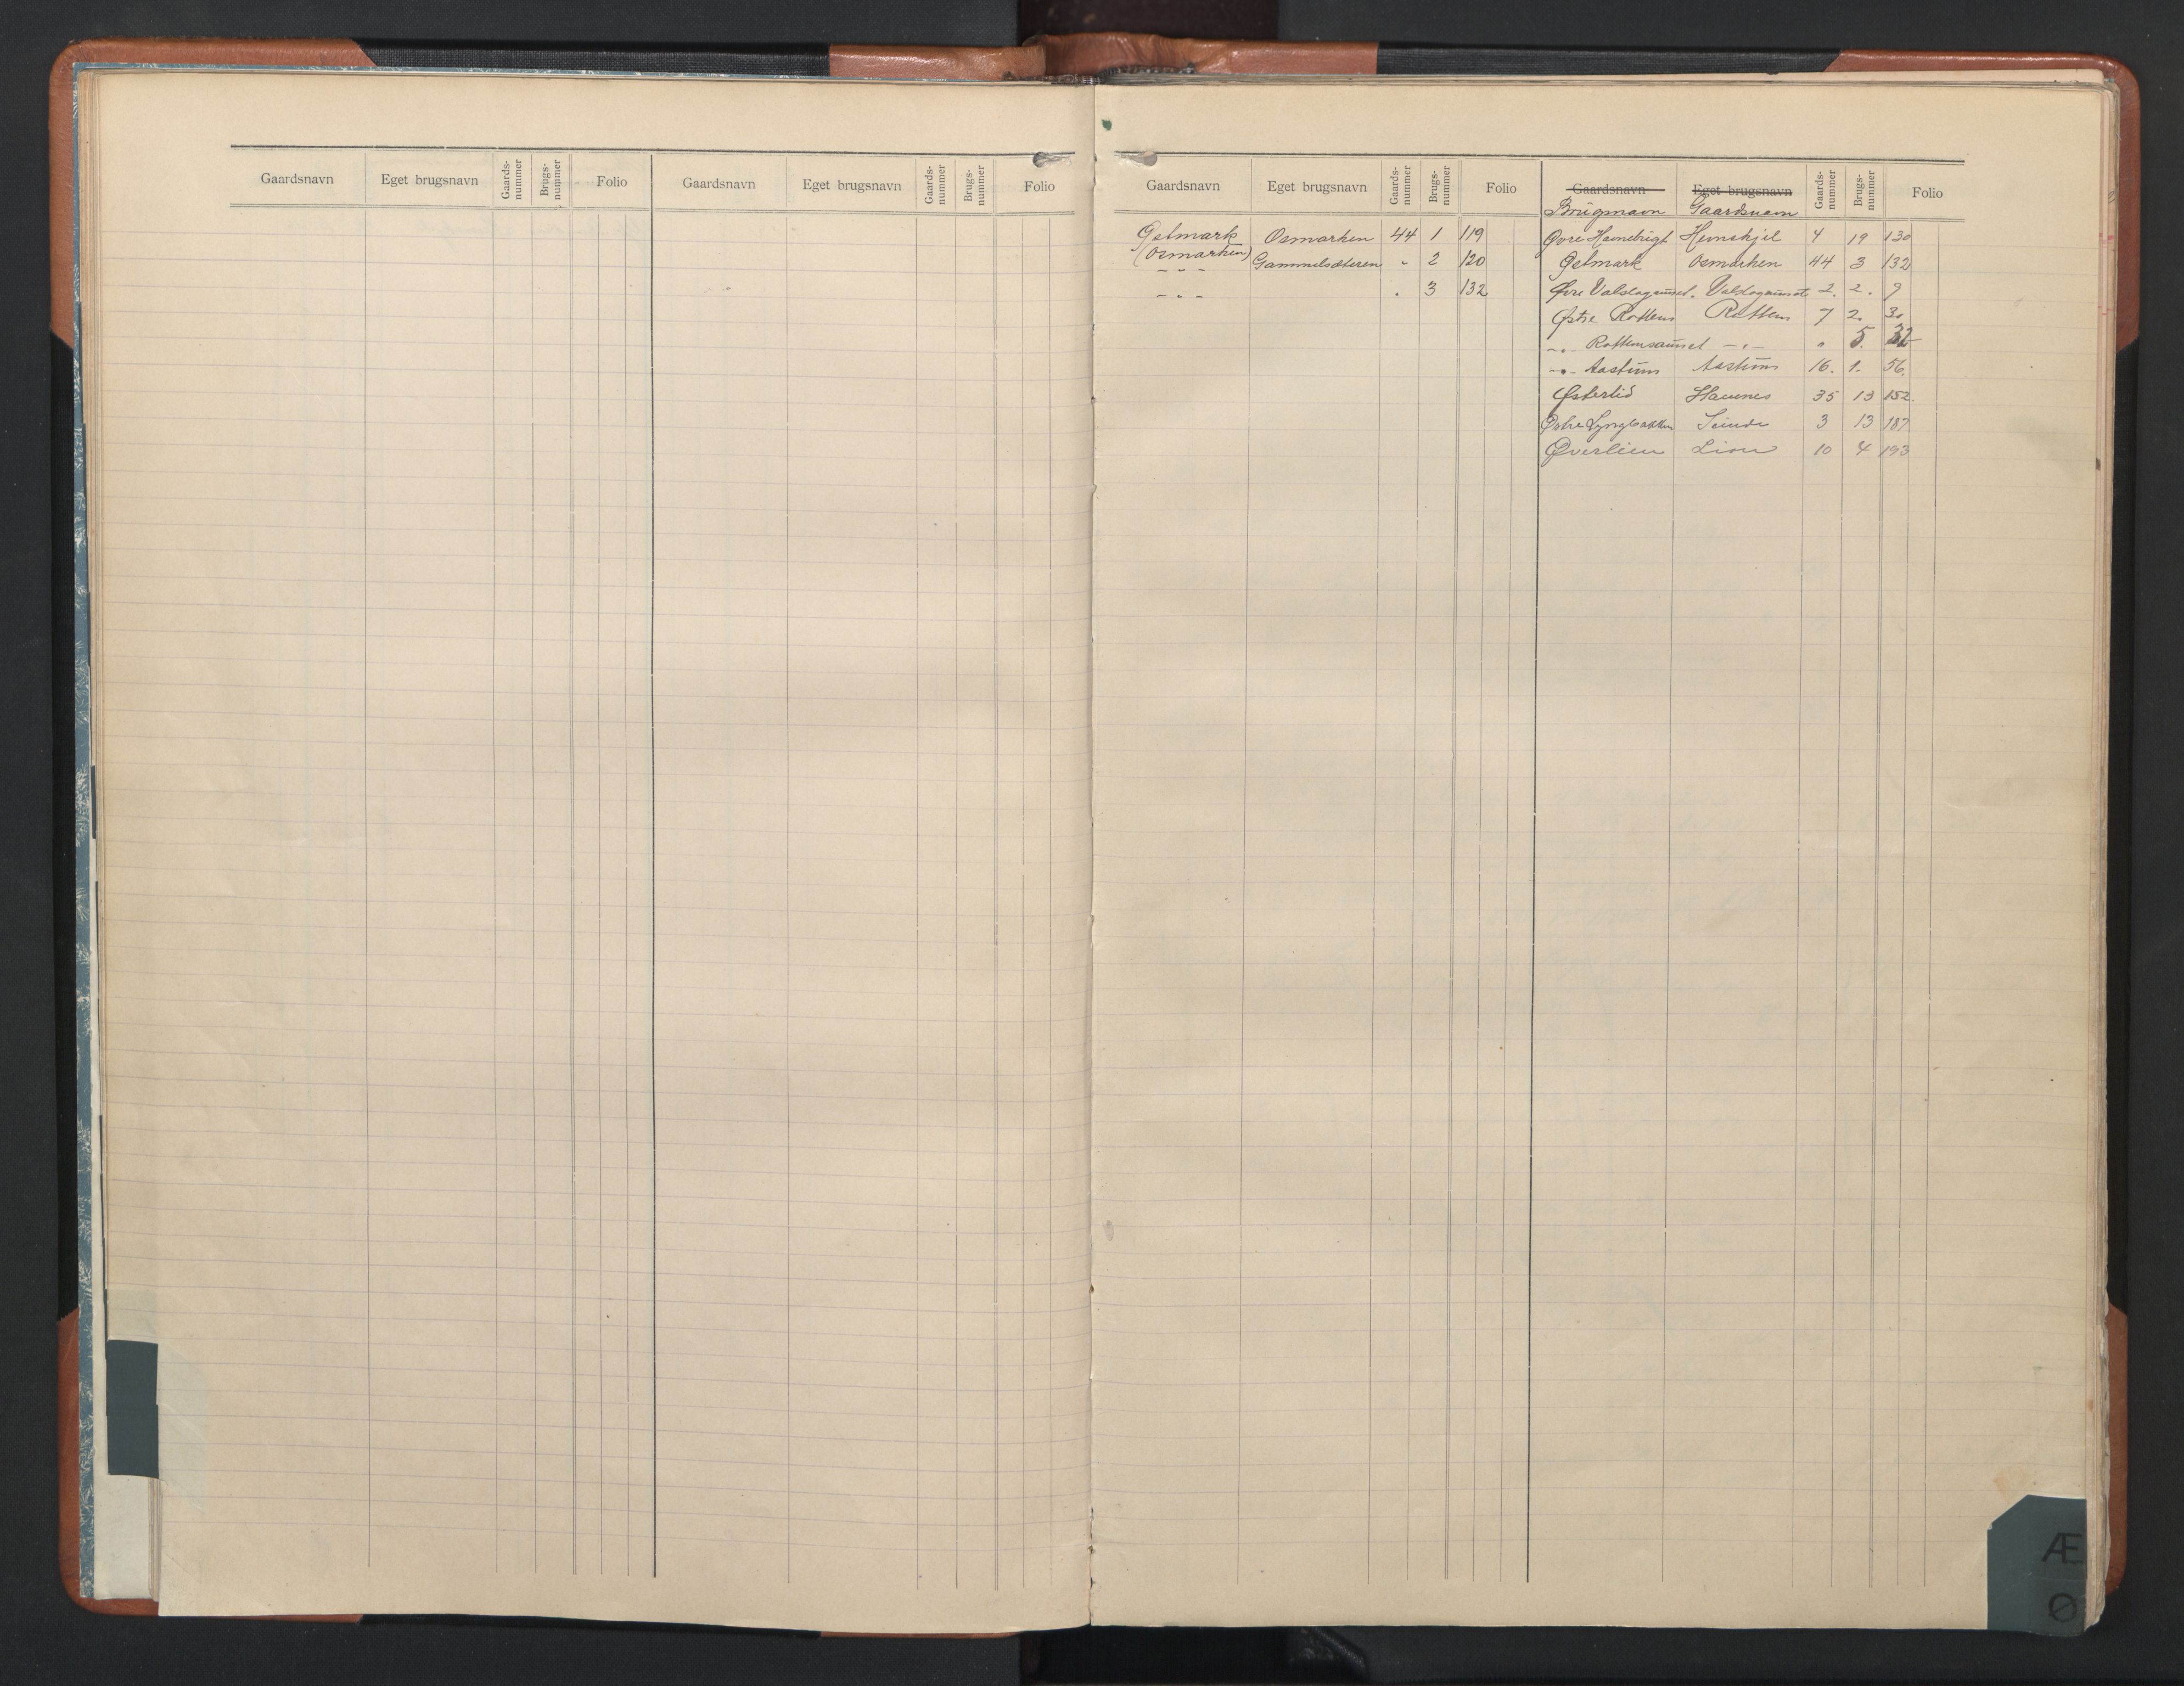 Gaardsnavn Eget brugsnavn Gaards-nummer Brugs-nummer Folio Gaardsnavn Eget brugsnavn Gaards-nummer Brugs-nummer Folio
Gaardsnavn Eget brugsnavn Gaards-nummer Brugs-nummer Folio
Østmark Osmarken 44 1 119
(Osmarken)
- " - Gammelsæteren " 2 120
- " - " 3 132
Gaardsnavn Eget brugsnavn Gaards-nummer Brugs-nummer Folio
Brugsnavn Gaardsnavn
Øvre Hemnskjel 4 19 130
Østmark Osmarken 44 3 132
Øvre Valslagaunet. Valslagaunet 2. 2. 9
Østre Rottem Rottem 7 2. 30
- " - Rottemsaunet - " - " 5. 32
- " - Aastum Aastum 16. 1. 56.
Østerlid Havnes 35 13 152.
Østre Lyngbakken 3 13 187
Øverlien Lien 10 4 193
Æ
Ø